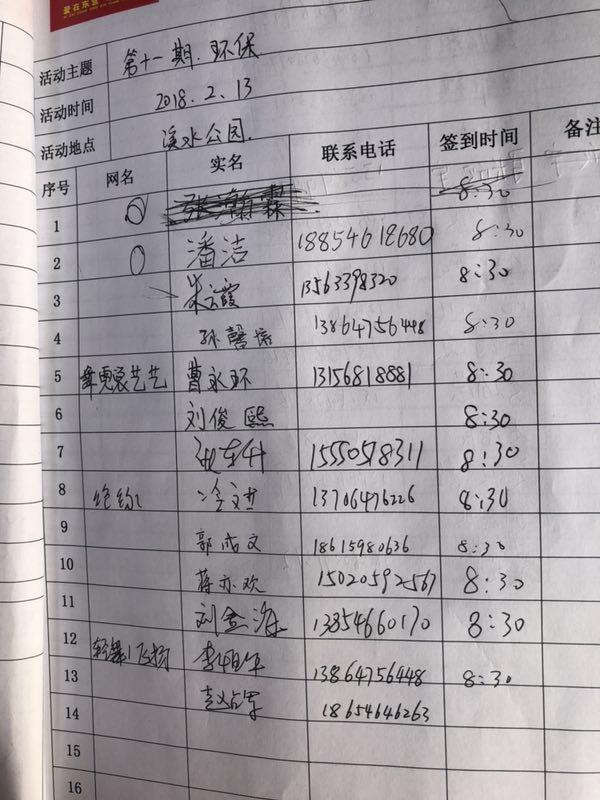 爱在东营
活动主题 第十一期.环保
活动时间 2018.2.13
活动地点 溪水公园.
序号 网名 实名 联系电话 签到时间 备注
1 8:30
2 潘洁 18854612680 8:30
3 朱云霞 13563398320 8:30
4 孙馨 13864756448 8:30
5 霓裳艺艺 曹永环 13156818881 8:30
6 刘俊熙 8:30
7 张东升 15550518311 8:30
8 冷文进 13706476226 8:30
9 郭浩文 18615980636 8:30
10 蒋亦欢 15020592567 8:30
11 刘金海 13854660170 8:30
12 轻舞飞扬 13864756448 8:30
13
14 赵占军 18654646263
15
16